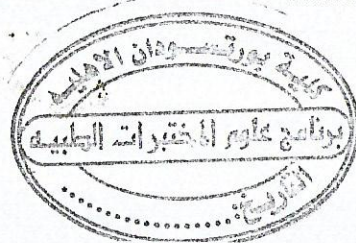 كلية بورتسودان الاهليه
برنامج علوم المختبرات الطبيه
التاريخ:..................